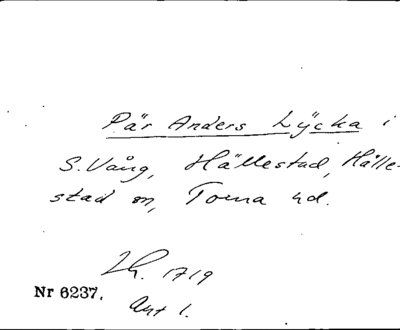 Pär Anders Lÿcka i
S. Vång, Hällestad, Hälle-
stad sn, Torna hd.
Lh. 1719
Nr 6237. Avt 1.